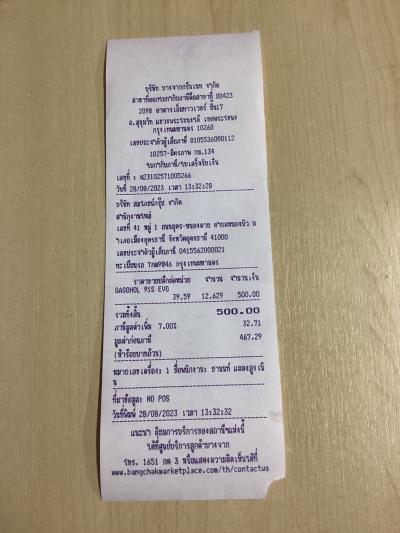 บริษัท บางจากกรีนเนท จำกัด
สาขาที่ออกใบกำกับภาษีคือสาขาที่ 00423
2098 อาคารเอ็มทาวเวอร์ ชั้น17
ถ.สุขุมวิท แขวงพระโขนงใต้ เขตพระโขนง
กรุงเทพมหานคร 10260
เลขประจำตัวผู้เสียภาษี 0105536080112
10257-มิตรภาพ กม.134
ใบกำกับภาษี/ใบเสร็จรับเงิน
เลขที่ : 023102571005266
วันที่ 28/08/2023 เวลา 13:32:28
บริษัท กรุ๊ป จำกัด
สำนักงานใหญ่
เลขที่ 41 หมู่ 1 ถนนอุดร-หนองคาย ตำบลหนองบัว อ
ำเภอเมืองอุดรธานี จังหวัดอุดรธานี 41000
เลขประจำตัวผู้เสียภาษี 0415562000021
ทะเบียนรถ กรุงเทพมหานคร
ราคาขายปลีกต่อหน่วย จำนวน จำนวนเงิน
GASOHOL 91S EVO
39.59 12.629 500.00
รวมทั้งสิ้น 500.00
ภาษีมูลค่าเพิ่ม 7.00% 32.71
มูลค่าก่อนภาษี 467.29
(ห้าร้อยบาทถ้วน)
หมายเลขเครื่อง: 1 ชื่อพนักงาน: ธานนท์ แสงสูงเนิ
น
ที่มาข้อมูล: MO POS
วันที่พิมพ์ 28/08/2023 เวลา 13:32:32
แนะนำ ติชมการบริการของสถานีฯแห่งนี้
ได้ที่ศูนย์บริการลูกค้าบางจาก
โทร. 1651 กด 3 หรือแสดงความคิดเห็นได้ที่
www.bangchakmarketplace.com/th/contactus